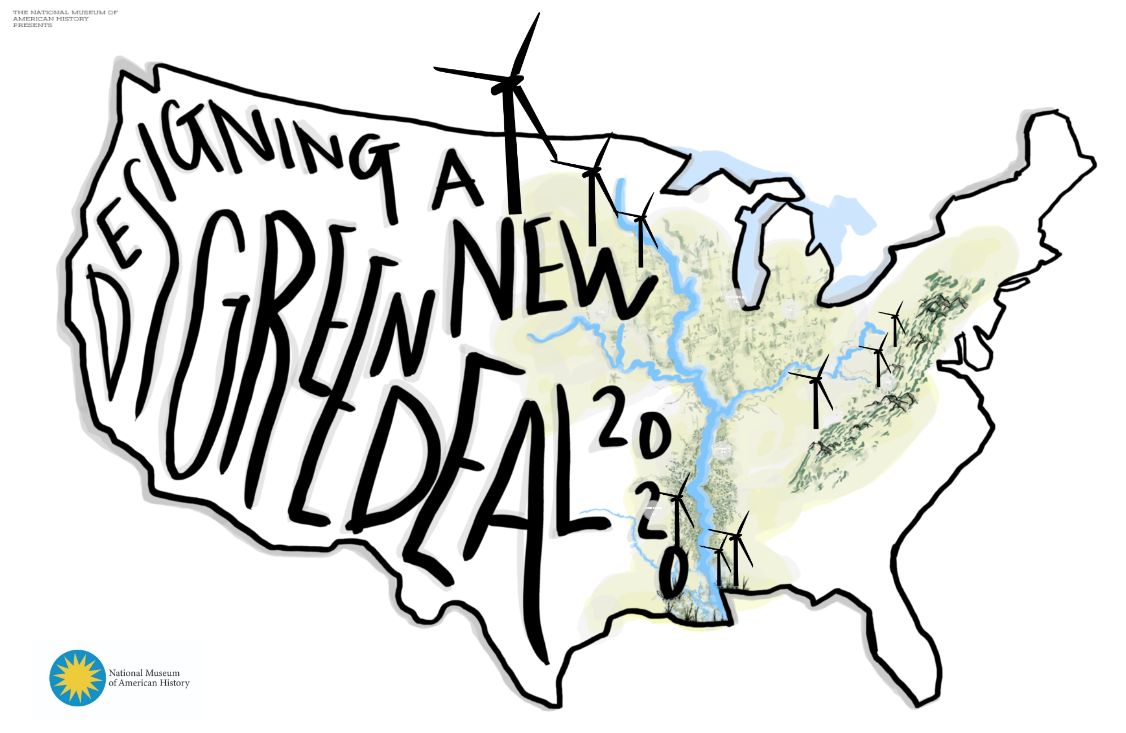 THE NATIONAL MUSEUM OF
AMERICAN HISTORY
PRESENTS
DESIGNING A
GREEN NEW
DEAL
20
2
0
National Museum
of American History